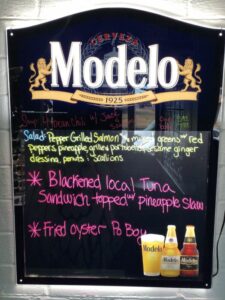 CERVEZA
Modelo
1925
Soup
Bean Chili w/
Salad: Pepper Grilled Salmon mixed greens w/ red
peppers, pineapple, grilled portobello, sesame ginger
dressing, peanuts + Scallions
* Blackened local Tuna
Sandwich topped w/ pineapple Slaw
* Fried oyster Po Boy
Modelo